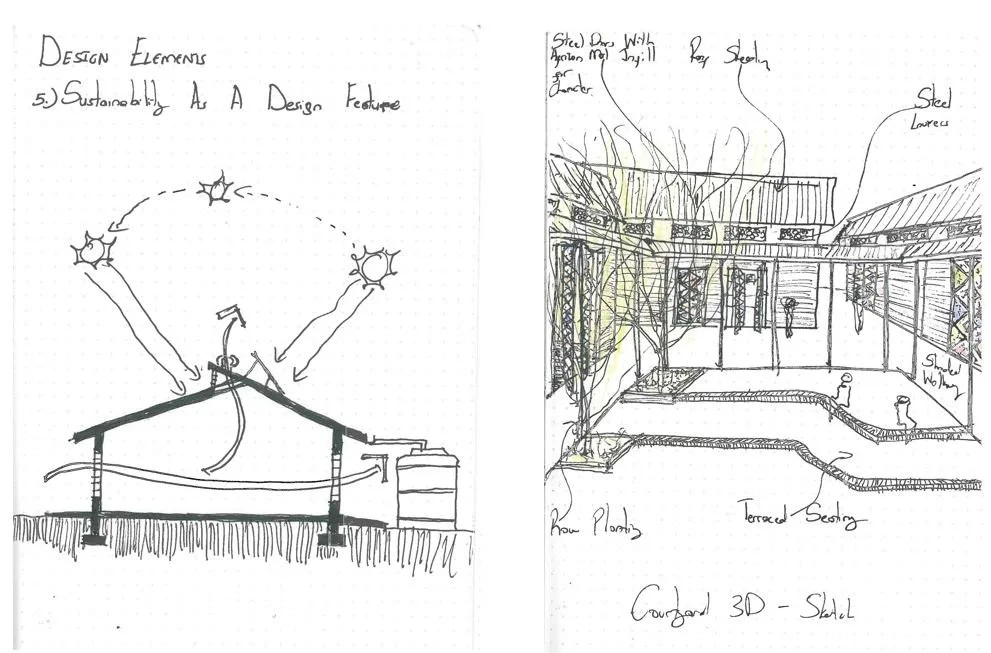 Design Elements
5.) Sustainability As A Design Feature
Steel Doors With
Infill
for
Character
Roof Sheeting
Steel
Louvers
Shaded
Walkway
Row Planting
Terraced Seating
Courtyard 3D - Sketch